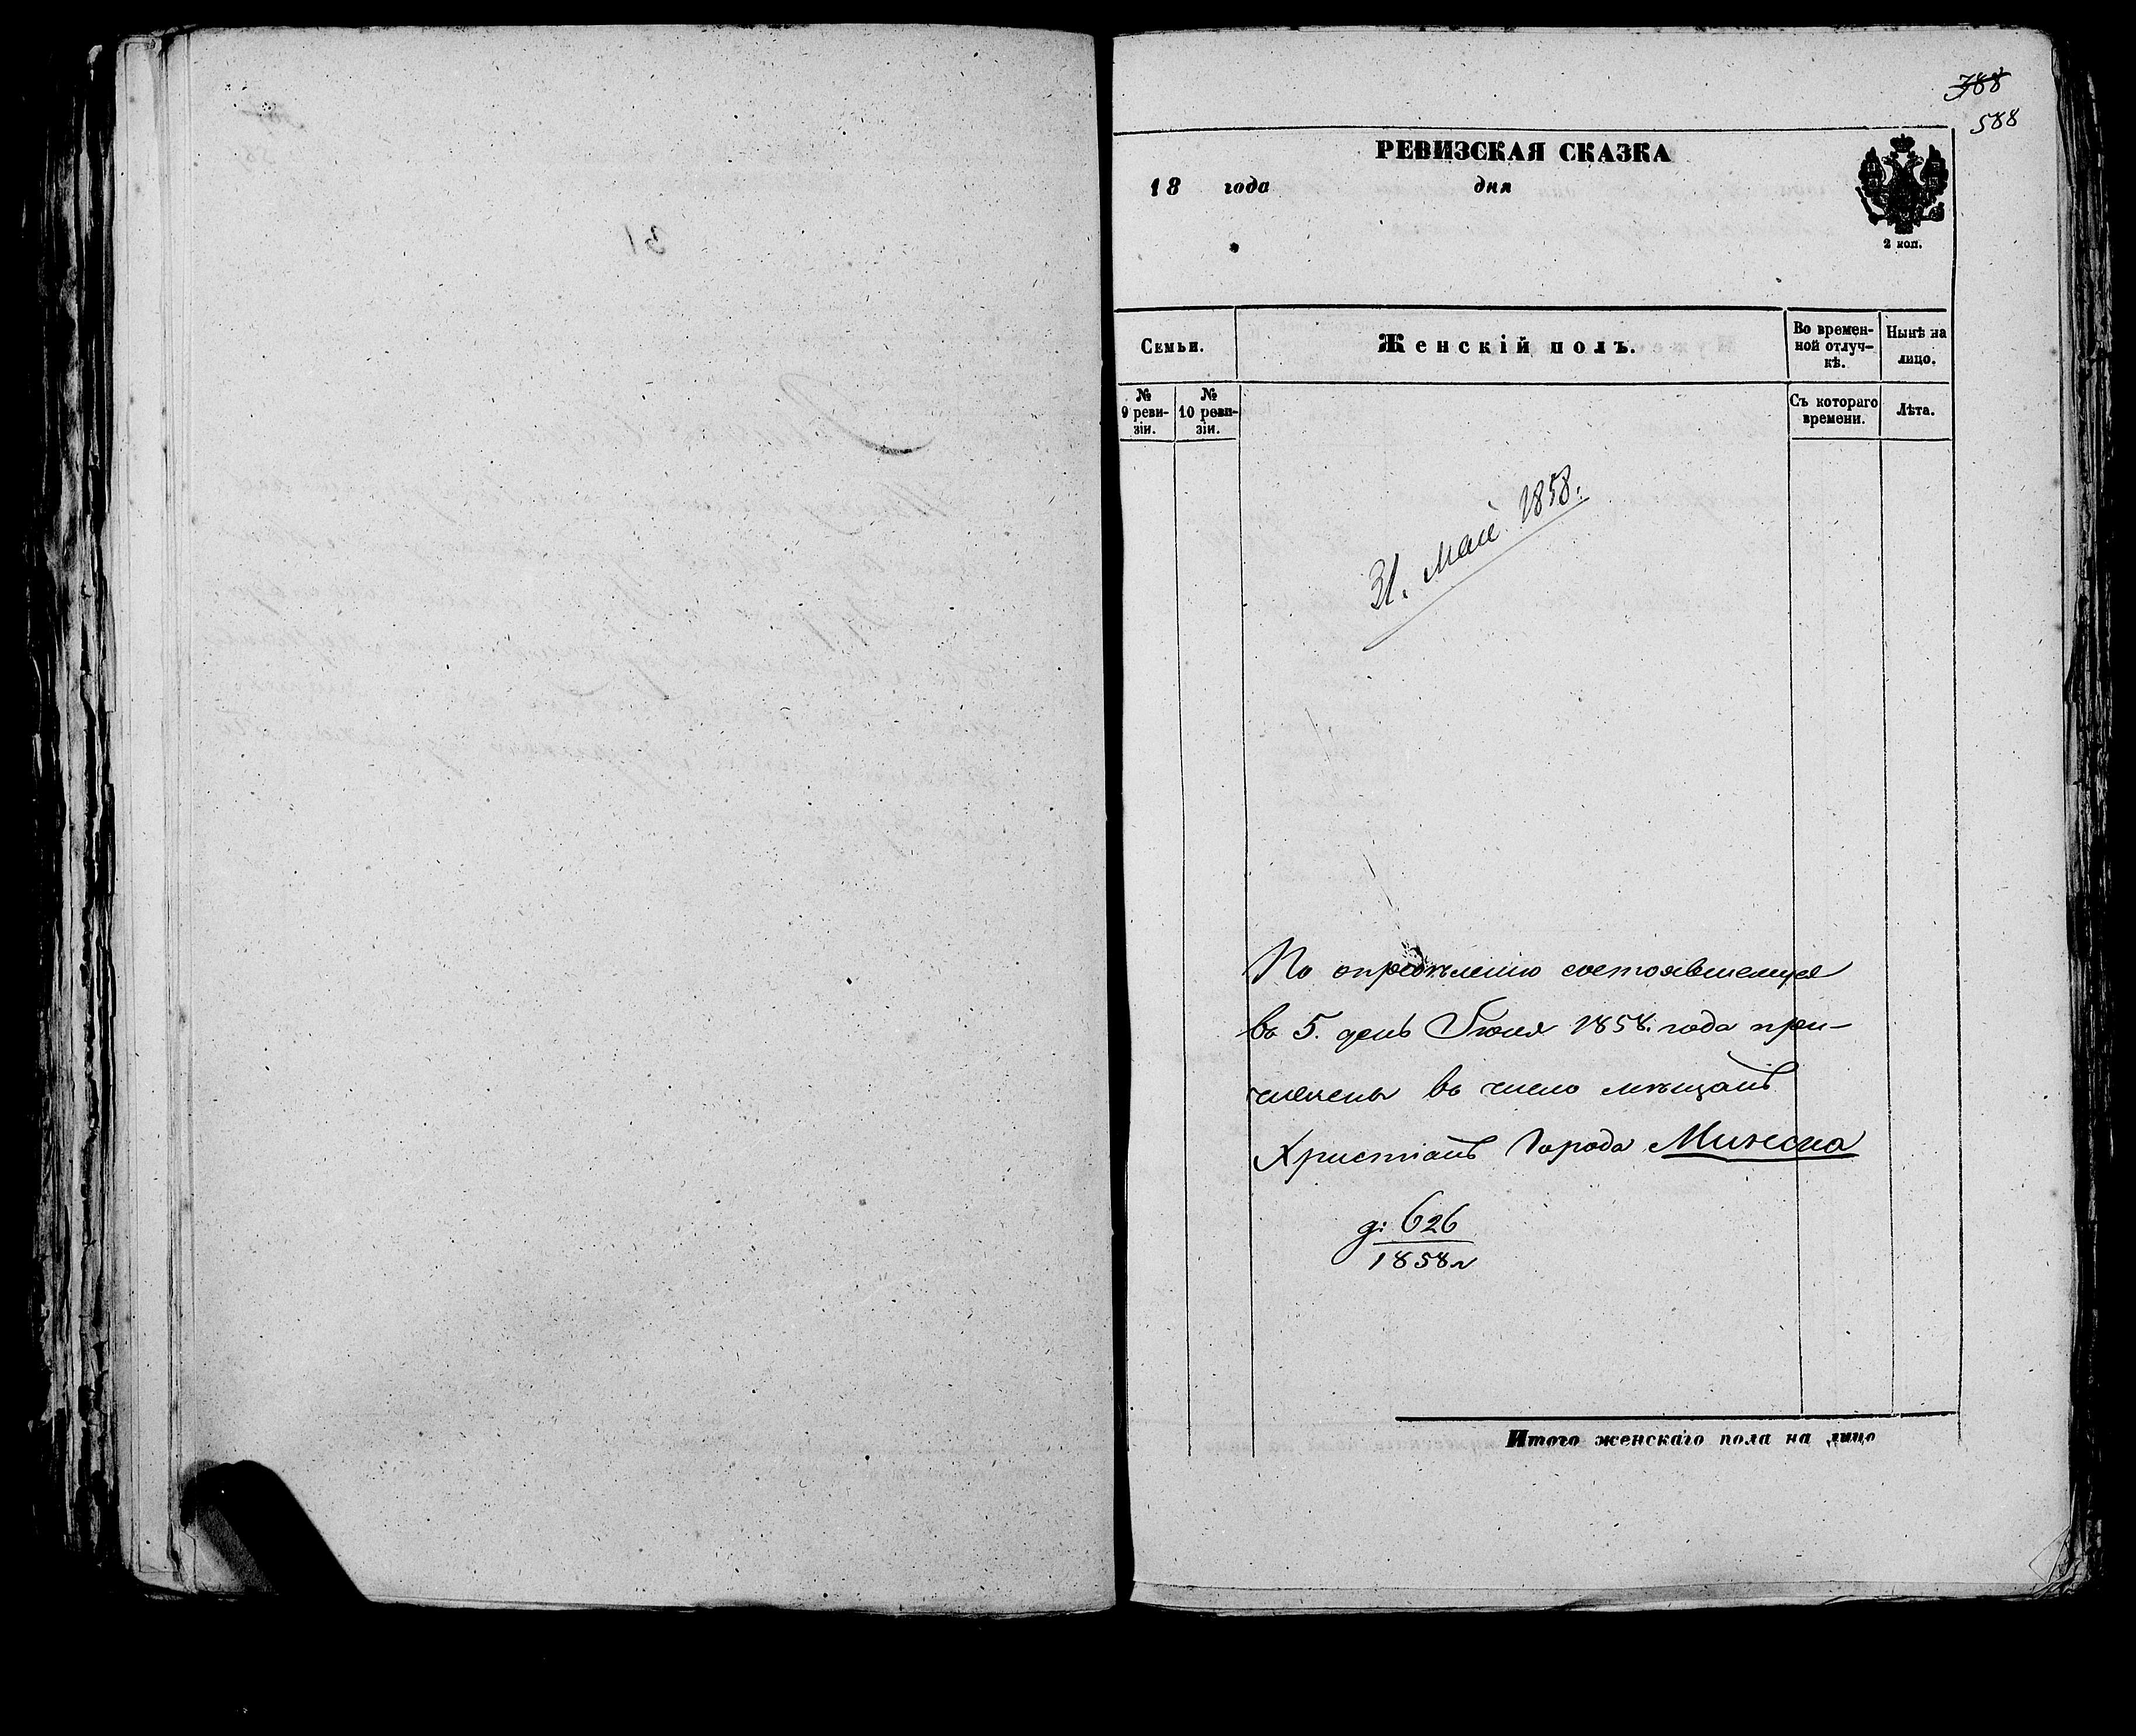 788
588
РЕВИЗСКАЯ СКАЗКА
18 года дня
2 коп.
Семьи.
Женскій полъ.
Во времен-
ной отлуч-
кѣ.
Нынѣ на
лицо.
№
9 реви-
зіи.
№
10 реви-
зіи.
Съ котораго
времени.
Лѣта.
31. Маія 1858.
По опредѣленію состоявшемуся
въ 5. день Іюня 1858. года при-
числены въ число мѣщанъ
Христіанъ Города Минска
д: 626
1858 г
Итого женскаго пола на лицо